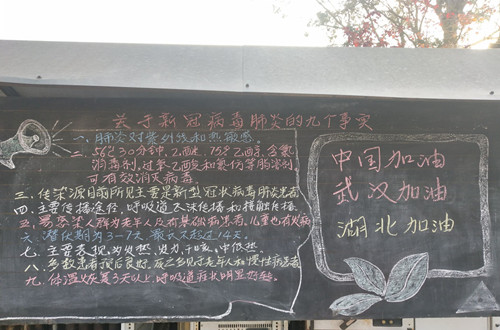 关于新冠病毒肺炎的九个事实
一、肺炎对紫外线和热敏感
二、56℃30分钟，乙醚，75%乙醇，含氯
消毒剂，过氧乙酸和氯仿等脂溶剂
可有效消灭病毒
三、传染源目前所见主要是新型冠状病毒肺炎患者
四、主要传播途径，呼吸道飞沫传播和接触传播
五、易感染人群为老年人及有基础病患者，儿童也有发病
六、潜伏期为3-7天 最长不超过14天
七、主要表现，为发热，乏力，干咳，中低热
八、多数患者预后良好，死亡多见于老年人和慢性病患者
九、体温恢复3天以上，呼吸道症状明显好转。
中国加油
武汉加油
湖北加油